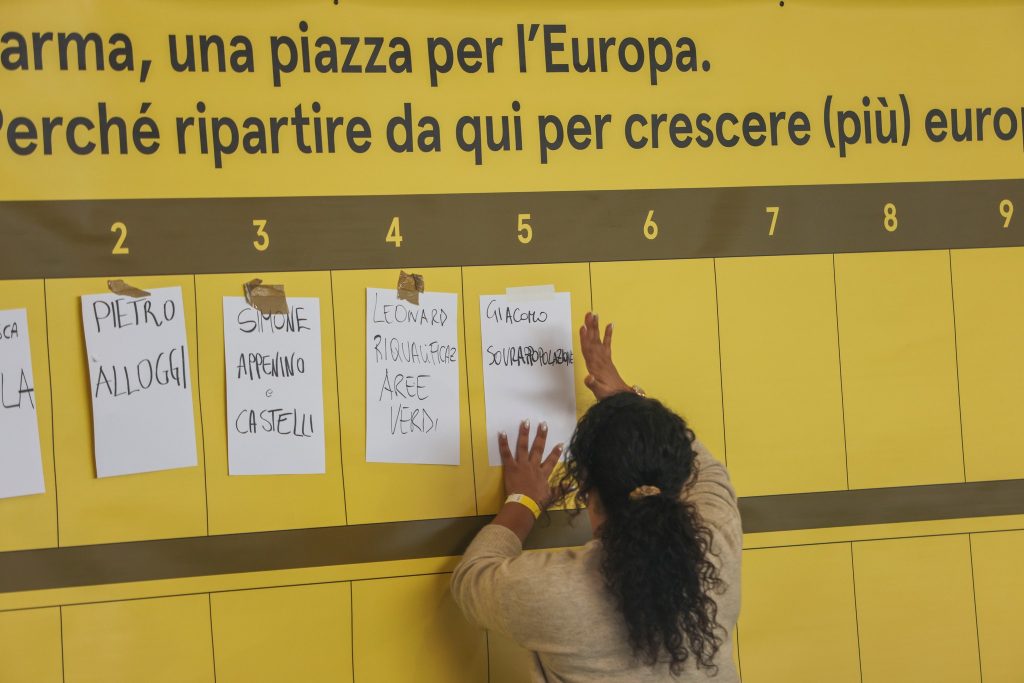 arma, una piazza per l'Europa.
Perché ripartire da qui per crescere (più) europ
2 3 4 5 6 7 8 9
SCA
LA
PIETRO
ALLOGGI
SIMONE
APPENINO
e
CASTELLI
LEONARD
RIQUALIFICAZ
AREE
VERDI
GIACOMO
SOVRAPPOPOLAZIONE